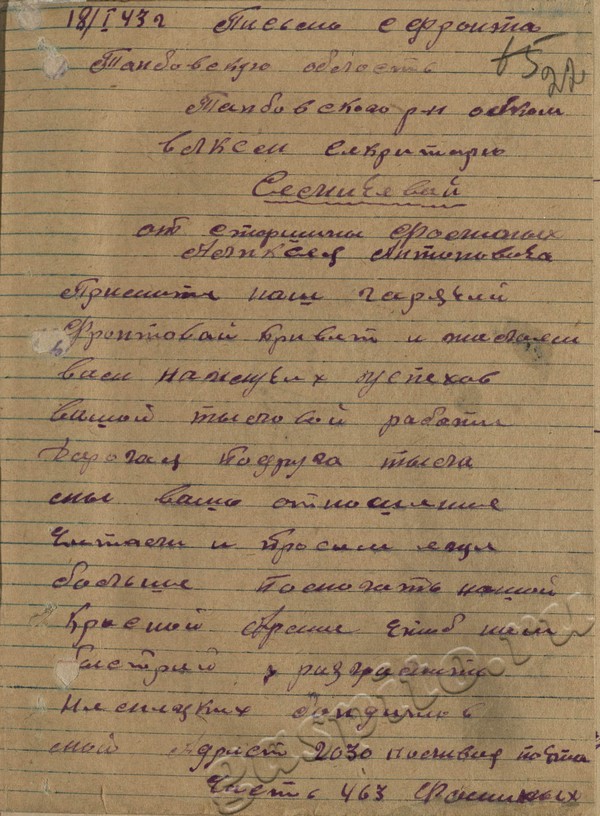 18/I 43 г Письмо с фронта
22
Тамбовскую область
Тамбовского р-н обком
ВЛКСМ секритарю
от старшины Фроспиных
Антоновича
Примите наш гарячей
Фронтовай привет и жалаем
вам наилучих успехов
вашой тыловой работи
Дарогая подруга тыла
мы ваше отношение
читали и просим еще
больше помогать нашой
Красной Армие чтоб нам
быстрей разгромить
немецких бандитов
мой адрест 2030 поливая почта
часть 463
gaspito.ru